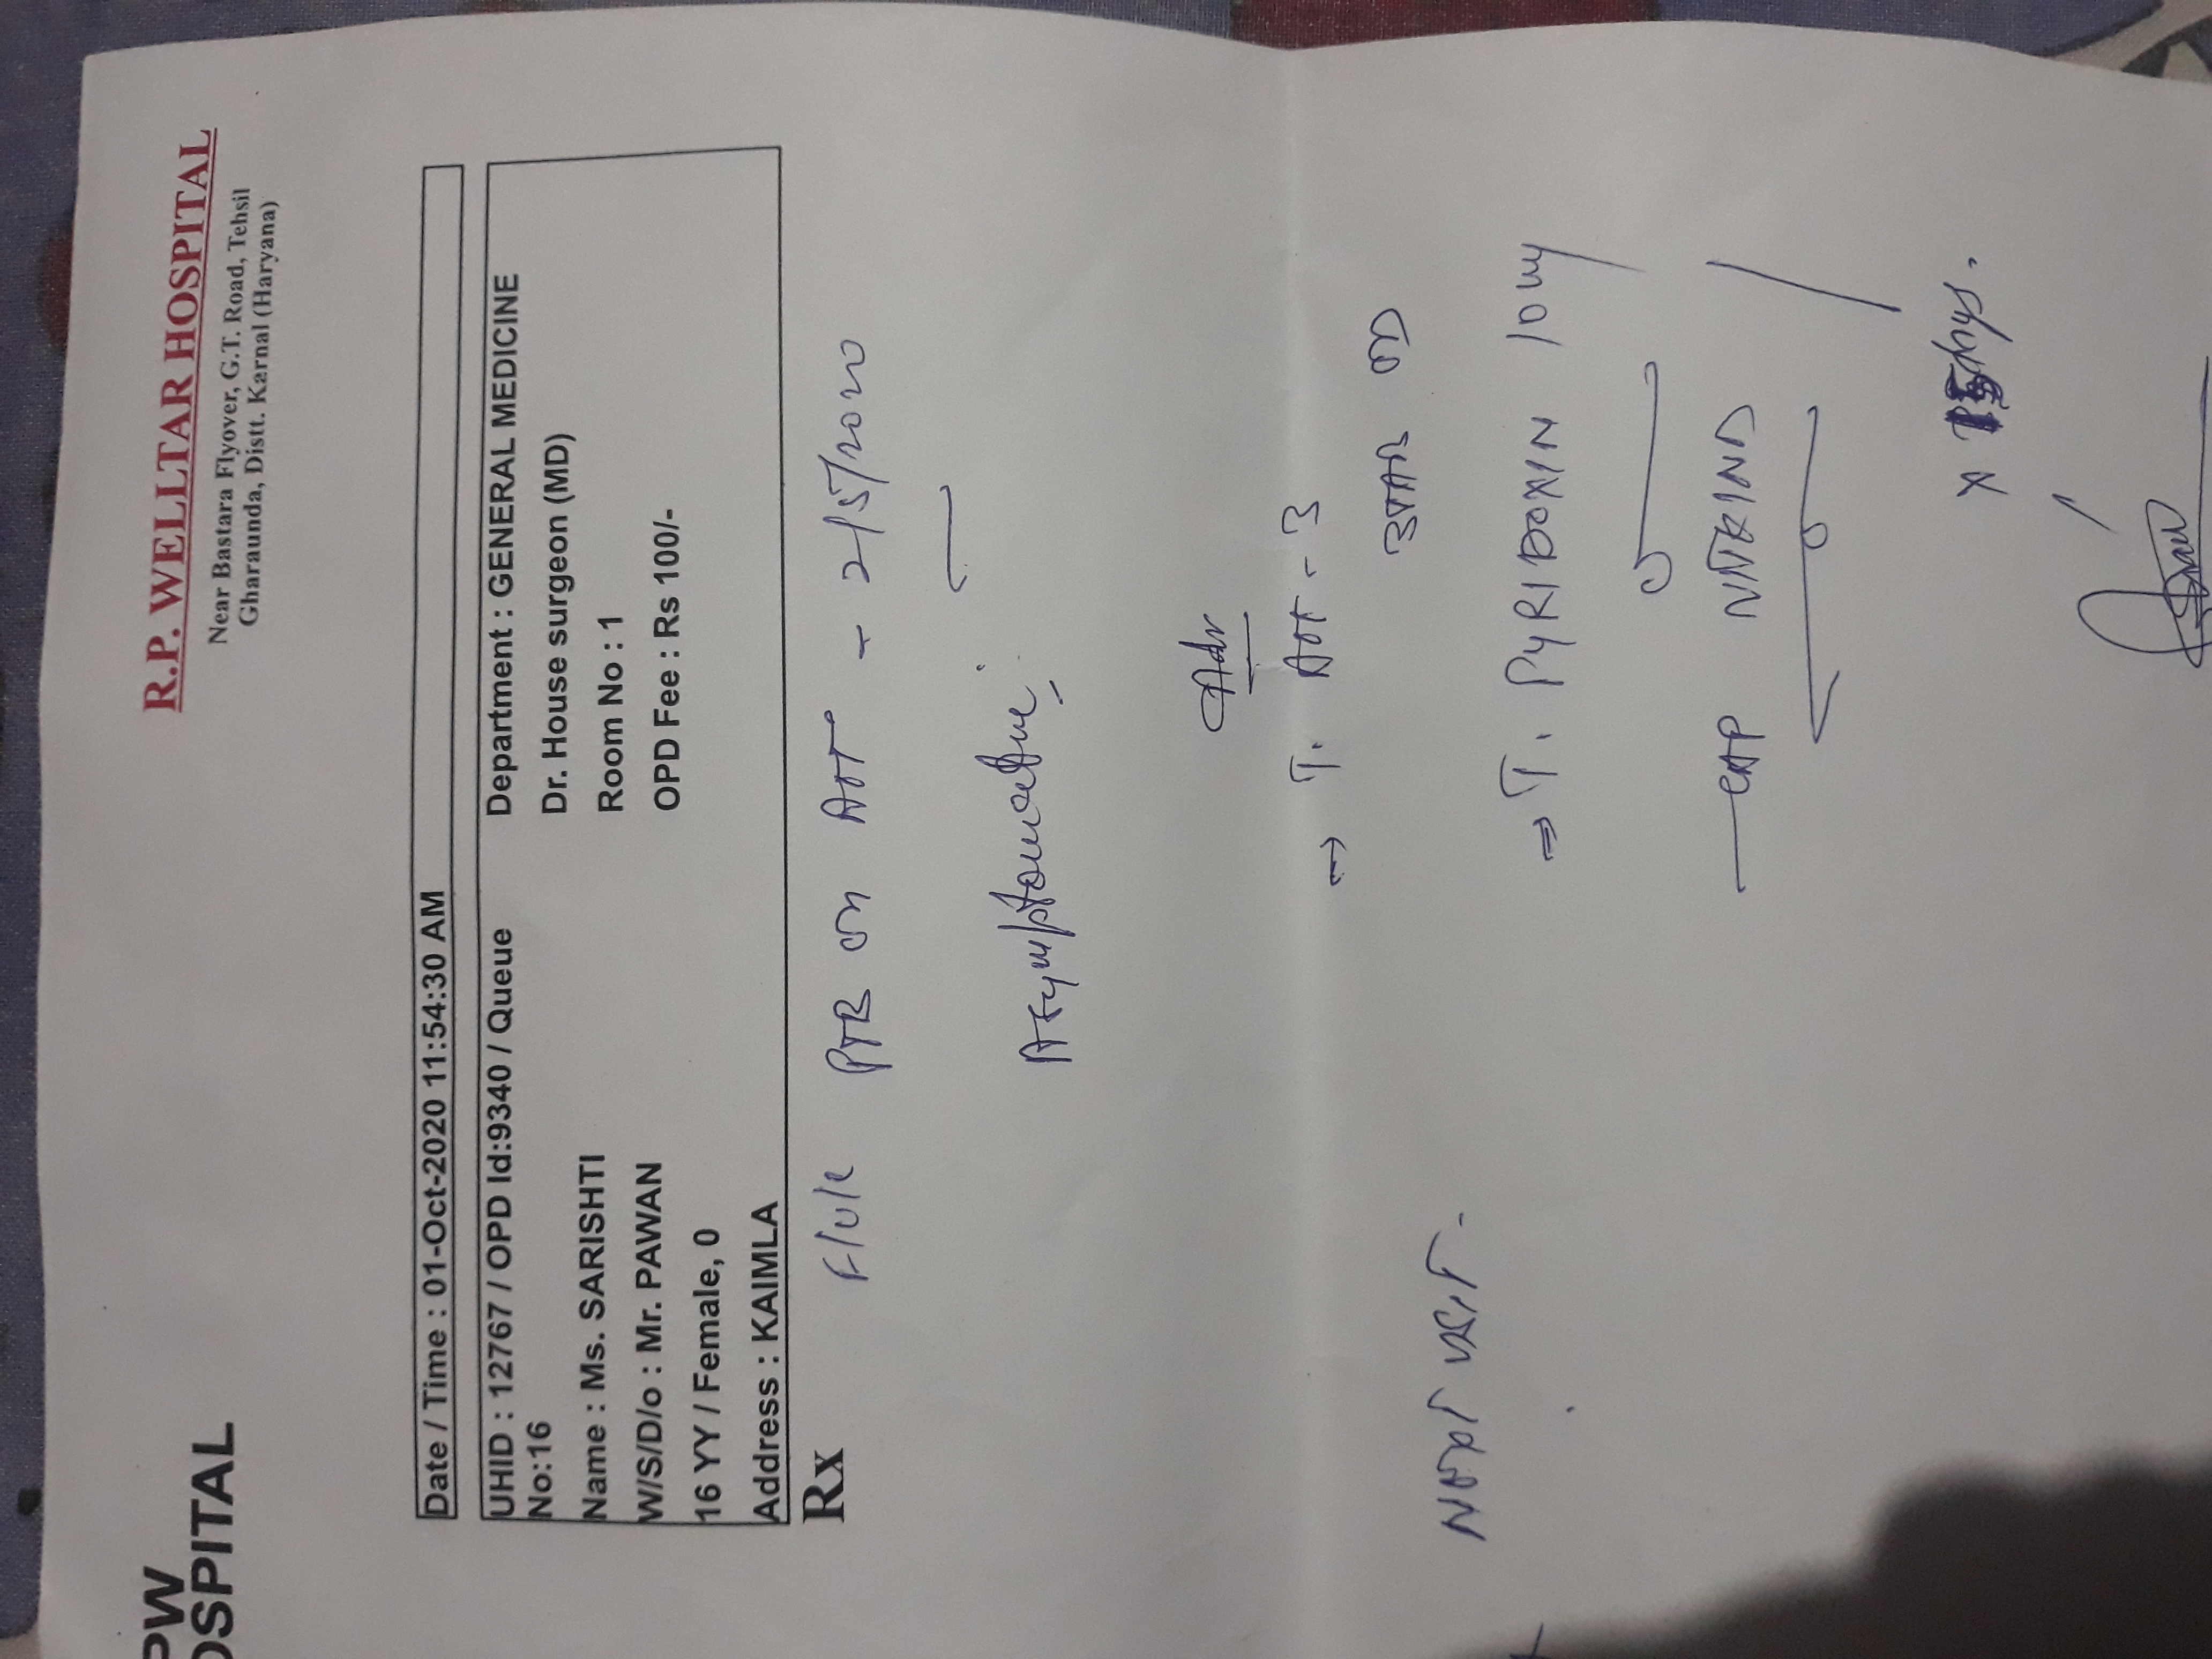 PW
OSPITAL
R.P. WELLTAR HOSPITAL
Near Bastara Flyover, G.T. Road, Tehsil
Gharaunda, Distt. Karnal (Haryana)
Date / Time : 01-Oct-2020 11:54:30 AM
UHID : 12767 / OPD Id:9340 / Queue
No:16
Name : Ms. SARISHTI
W/S/D/o : Mr. PAWAN
16 YY / Female, 0
Address : KAIMLA
Department : GENERAL MEDICINE
Dr. House surgeon (MD)
Room No : 1
OPD Fee : Rs 100/-
Rx
PTB on ATT - 2/5/2020
Asymptomatic
Adv
T. ATT - 3
3TAB OD
NEXT VISIT -
T. PYRIDOXIN 10 mg
CAP
x 15 days.